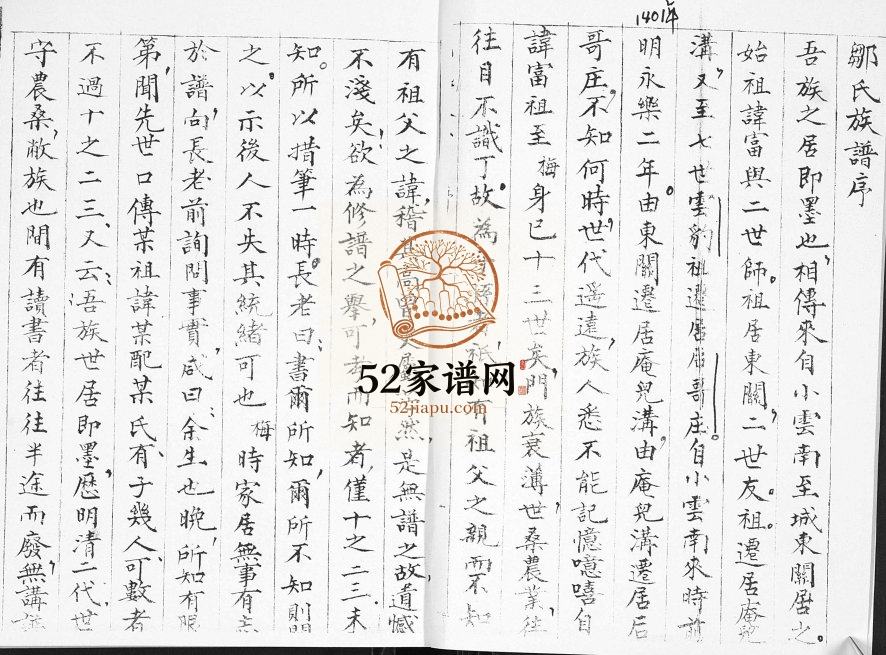 1401年
鄒氏族譜序
吾族之居即墨也，相傳來自小雲南至城東關居之。
始祖諱富與二世師。祖居東關，二世友。祖。遷居庵兒
溝，又至七世雲豹祖遷居后哥庄。自小雲南來時前
明永樂二年。由東關遷居庵兒溝，由庵兒溝遷居后
哥庄。不知何時，世代遙遠，族人悉不能記憶噫嘻自
諱富祖至梅身已十三世矣，門族衰薄，世桑農業，往
往目不識丁故。為 祇 有祖父之親而不知
有祖父之諱，稽其高曾 然，是無譜之故，遺憾
不淺矣，欲為修譜之舉，可考而知者，僅十之二三，未
知。所以措筆一時。長老曰：書爾所知，爾所不知則闕
之。以示後人不失其統緒可也 梅 時家居無事有志
於譜，向長老前詢問事實，咸曰：余生也晚，所知有限
第聞先世口傳某祖諱某配某氏，有子幾人，可數者
不過十之二三，又云：吾族世居即墨，歷明清二代，世
守農桑，敝族也間有讀書者往往半途而廢，無講
52家谱网
52jiapu.com